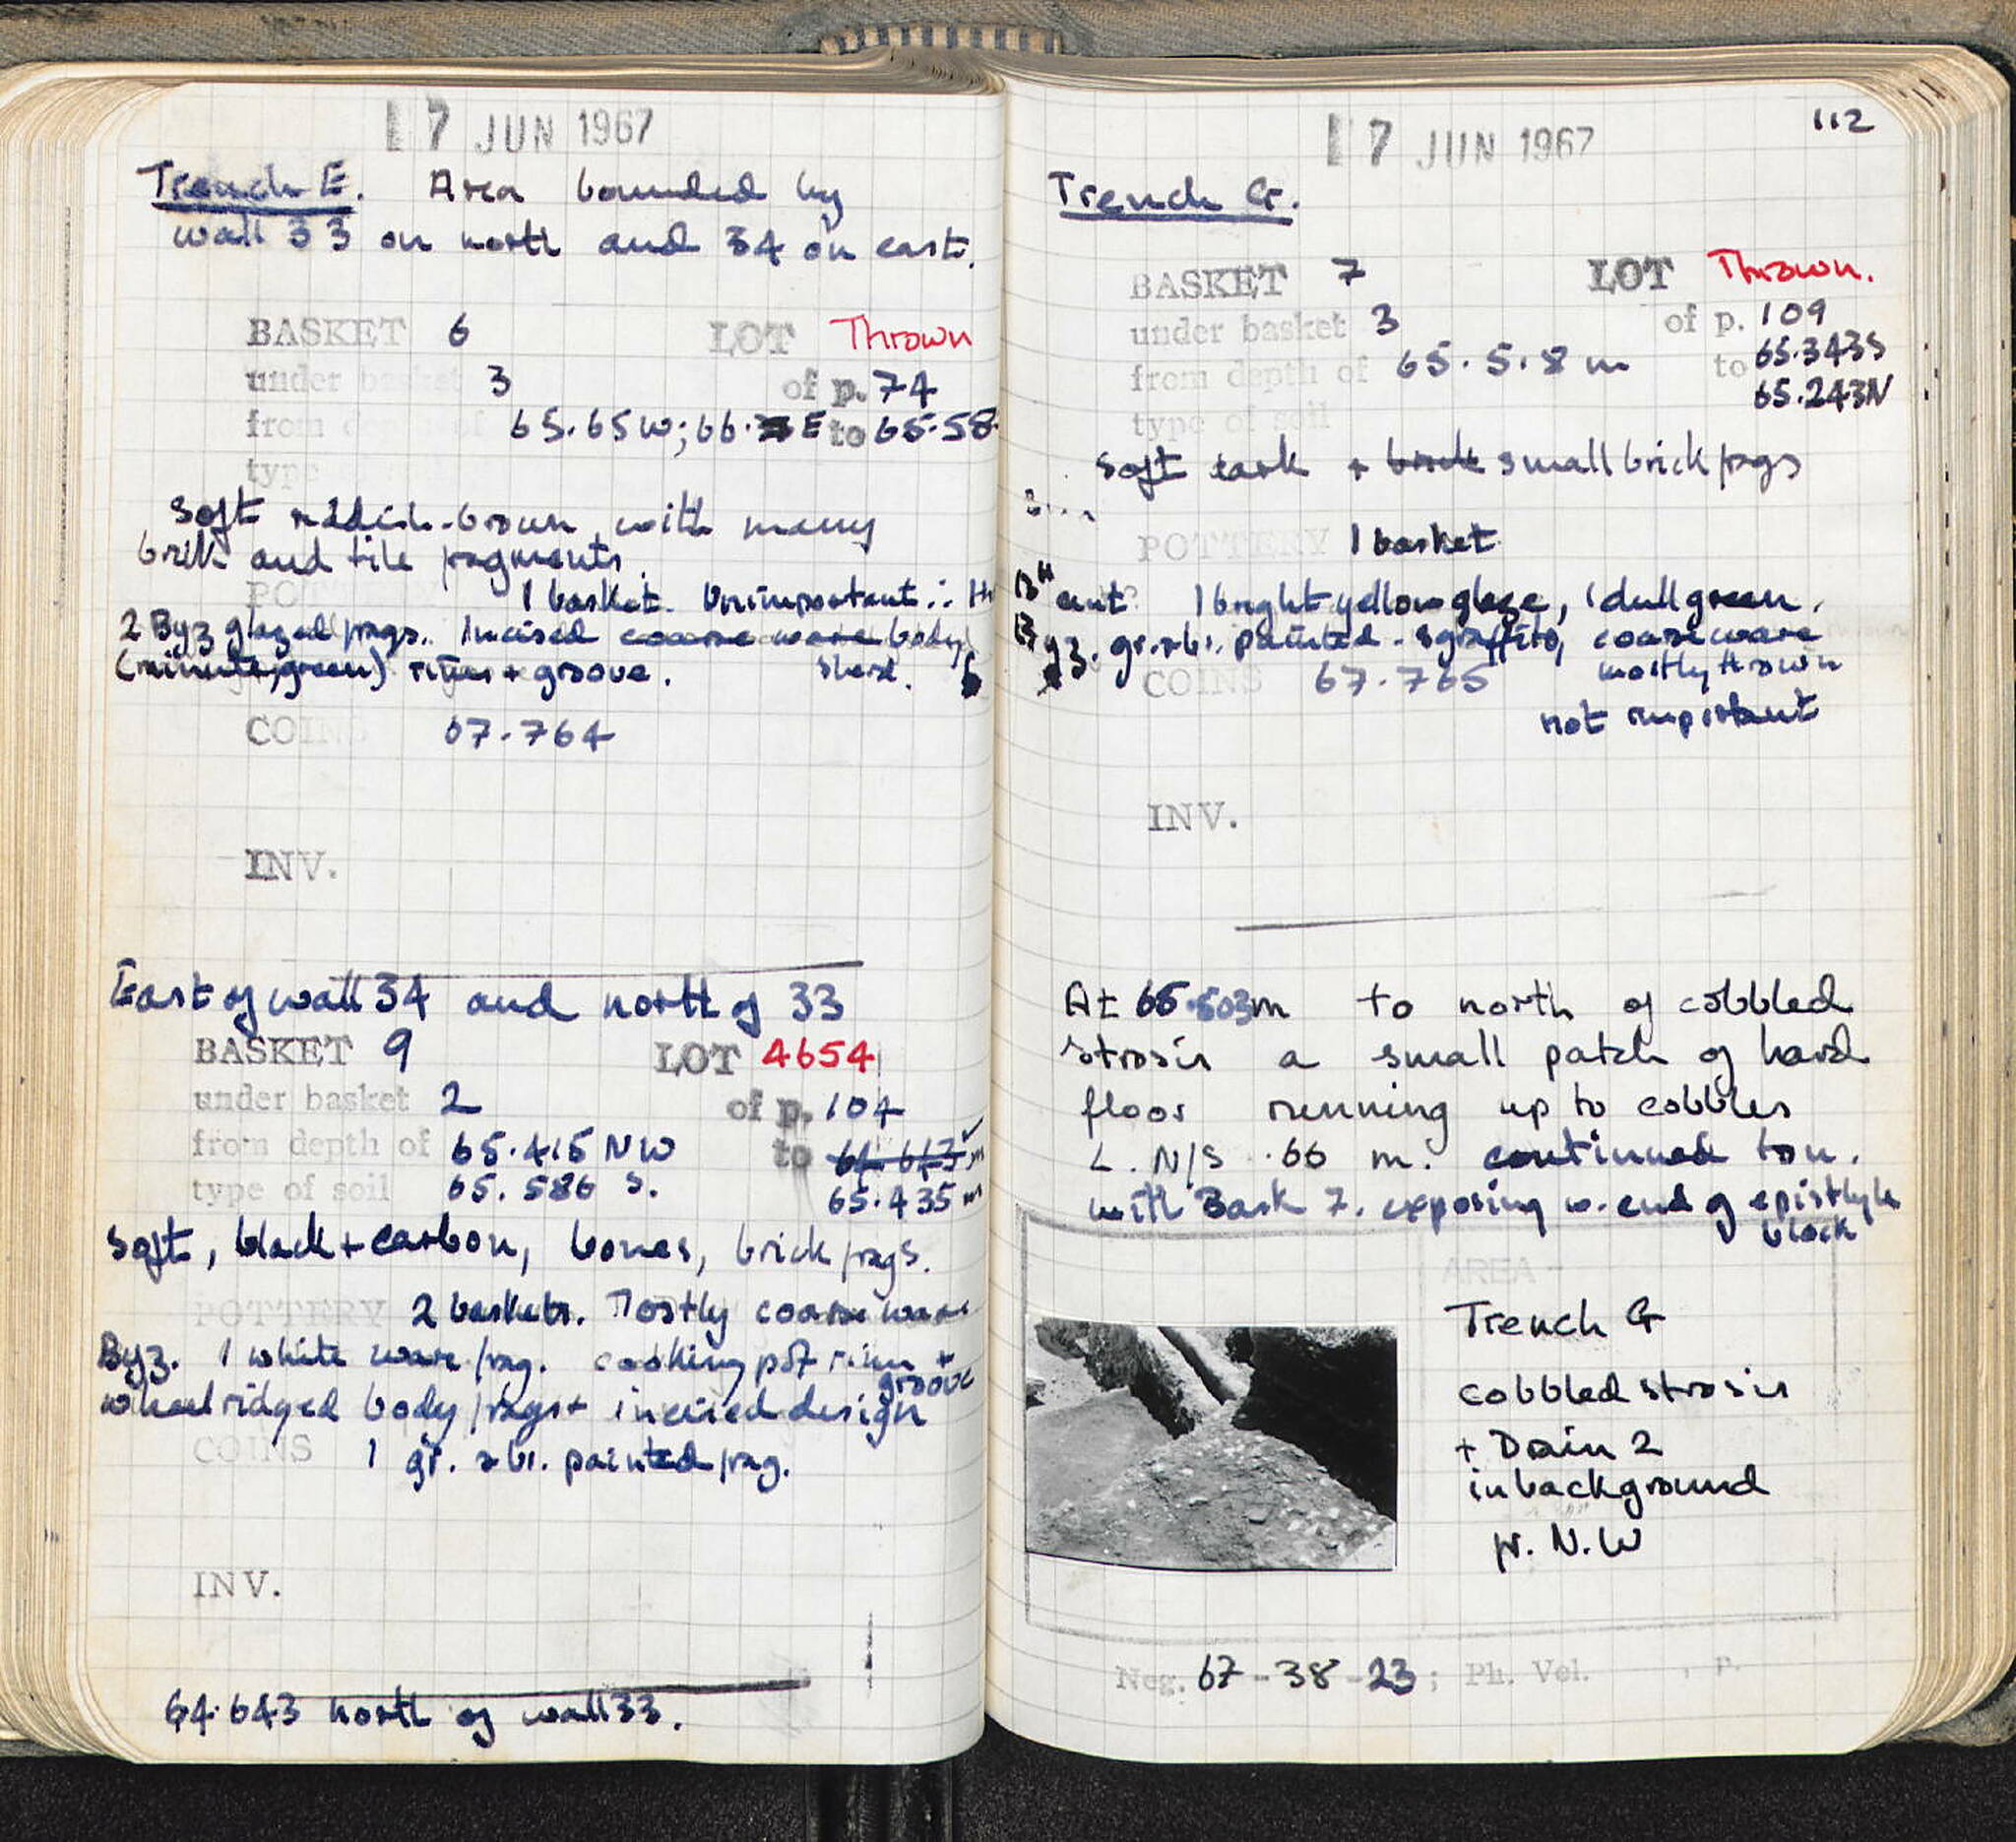 17 JUN 1967
Trench E. Area bounded by
wall 33 on north and 34 on east.
BASKET 6 LOT Thrown
under basket 3 of p. 74
from depth of 65.65W; 66. E to 65.58
type
Soft reddish-brown, with many
brik and tile fragments.
1 basket. Unimportant.
2 Byz glazed frags. Incised coarse ware body
(minute, green) rims + groove. sherd.
COINS 67.764
INV.
East of wall 34 and north of 33
BASKET 9 LOT 4654
under basket 2 of p. 104
from depth of 65.415 NW to 64.643 m
type of soil 65.586 S. 65.435 m
Soft, black + carbon, bones, brick frags.
POTTERY 2 baskets. Mostly coarse ware
Byz. 1 white ware frag. cooking pot rim +
groove
wheelridged body frags + incised design
COINS 1 gr. + br. painted frag.
INV.
64.643 north of wall 33.
17 JUN 1967
112
Trench G.
BASKET 7 LOT Thrown.
under basket 3 of p. 109
from depth of 65.518 m to 65.343S
65.243N
type of soil
Soft dark + brick small brick frags
POTTERY 1 basket
1 bright yellow glaze, 1 dull green.
Byz. gr. + br. painted. sgraffito, coarse ware
COINS 67.765 mostly thrown
not important
INV.
At 65.503m to north of cobbled
strosis a small patch of hard
floor running up to cobbles
L. N/S .66 m. continued ton.
with Bask 7. exposing w. end of epistyle
block
AREA -
Trench G
cobbled strosis
+ Drain 2
in background
fr. N.W
Neg. 67-38-23; Ph. Vol. , p.